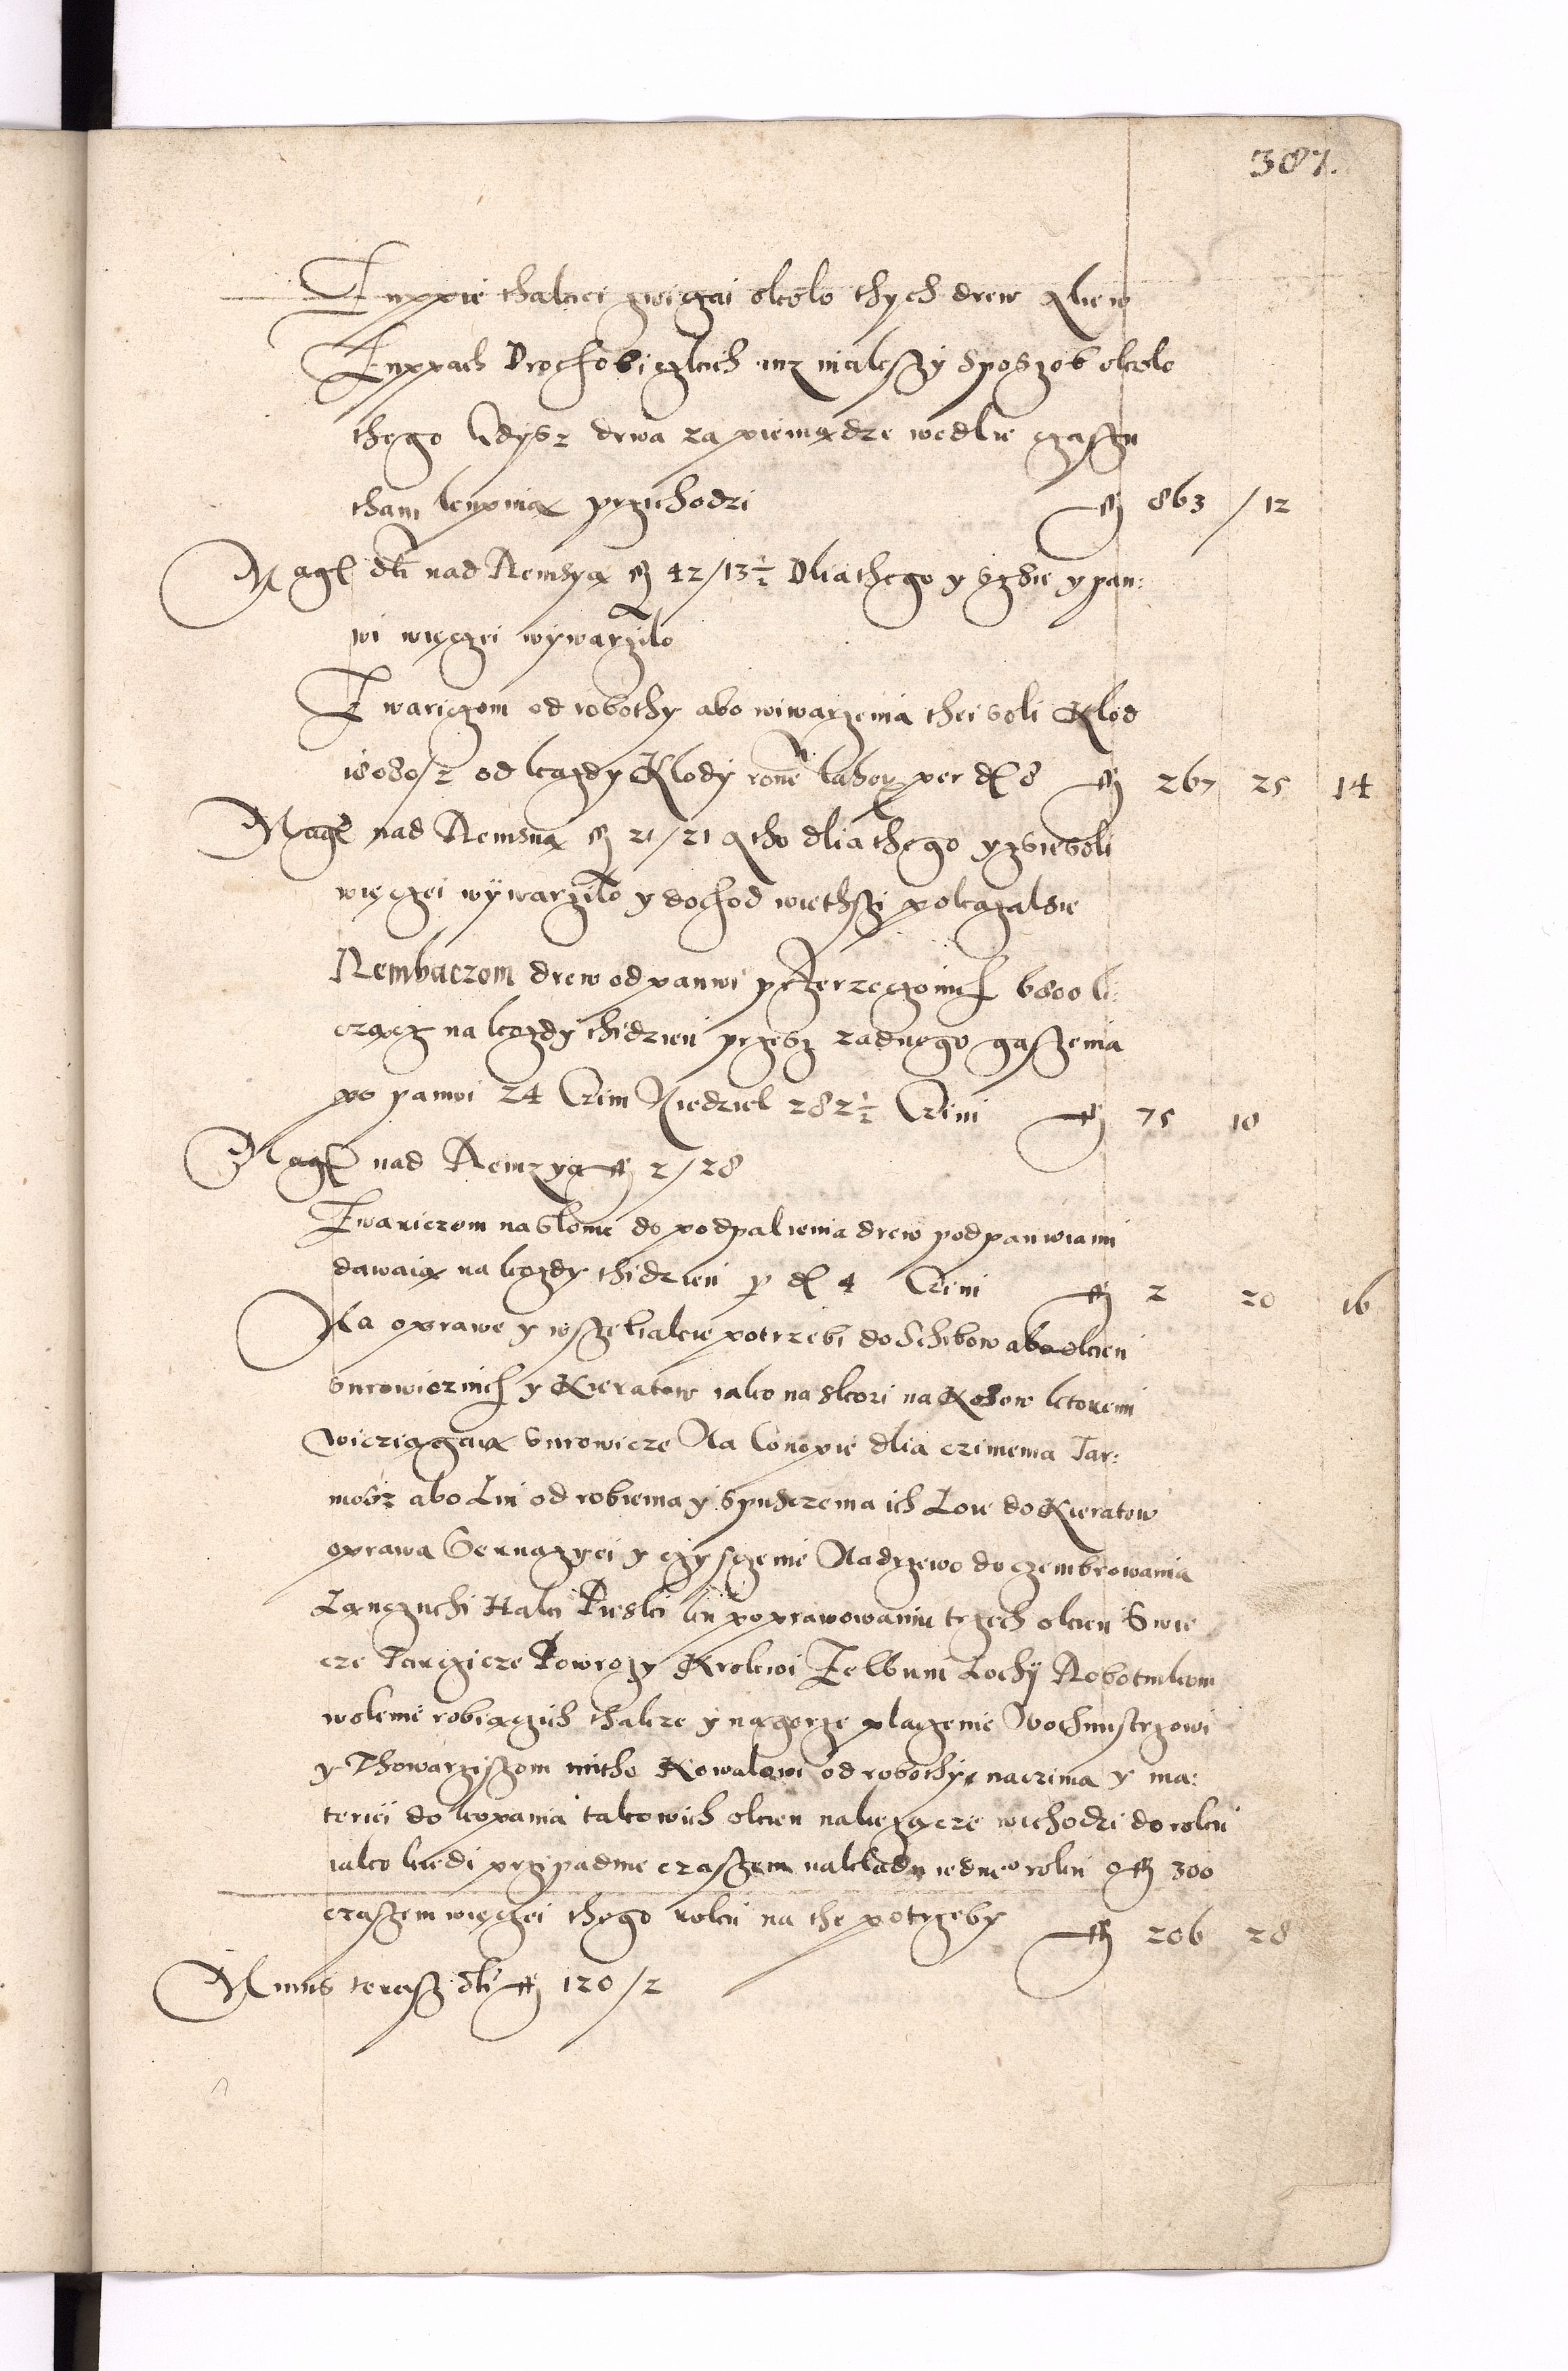 387.
Zuppie thakici zwiczai okolo thych drew All w
Zuppach Drochobiczkich inz iniakszÿ sposzob okolo
thego kdysz drwa za pieniądze wedlie czaszu
tham kupniąx przichodzi ℳ 863 / 12
Magl dti nad Remsyą ℳ 42/13½ Dlia thego ysz sie y pan:
wi więczei wÿwarzilo
Zwariczom od robothy abo wiwarzenia thei soli Klod
18080/2 od kazdy Klody rone labory per d 8 ℳ 267 25 14
Magl nad Remsyą ℳ 21/21 A tho dlia thego ysz sie soli
więczei wÿwarzilo y dochod wiethszi pokazal sie
Rembaczom drew od panwi pierzeczonich 6800 li:
cząncz na kozdy thidzien przesz zadnego gaszenia
po panwi 24 Czini Niedziel 282½ Czini ℳ 75 18
Magl nad Remzyą ℳ 2/28
Zwariczom na slome do podpalienia drew pod panwiami
dawaią na kozdy thidzien per d 4 Czini ℳ 2 20 16
Na oprawe y wszeliakie potrzebi do Schibow abo okien
surowicznich y Kieratow iako na skori na Koszow ktoremi
wicziągaią surowicze Na konopie dlia czinienia Tar:
mosz abo Lin od robienia y spuszczenia ich Loie do Kieratow
oprawa Czernaczyei y czysczenie Na drzewo do czembrowania
Lanczuchi Haki Pieski ku poprawowaniu trzech okien Swie
cze Tarczicze Powrozy Krokwi Felbunt Lochÿ Robotnikom
wolenie robiączich thakze y na gorze placzenie Wochmistrzowi
y Thowarziszom mitho Kowalowi od robothy naczinia y ma:
teriei do kopania takowich okien nalieząncze wichodzi do roku
iako kiedi przipadnie czaszem nakladu iedneo roku ℳ 300
czaszem więczei thego roku na the potrzeby ℳ 206 28
Minus terasz dti ℳ 120/2